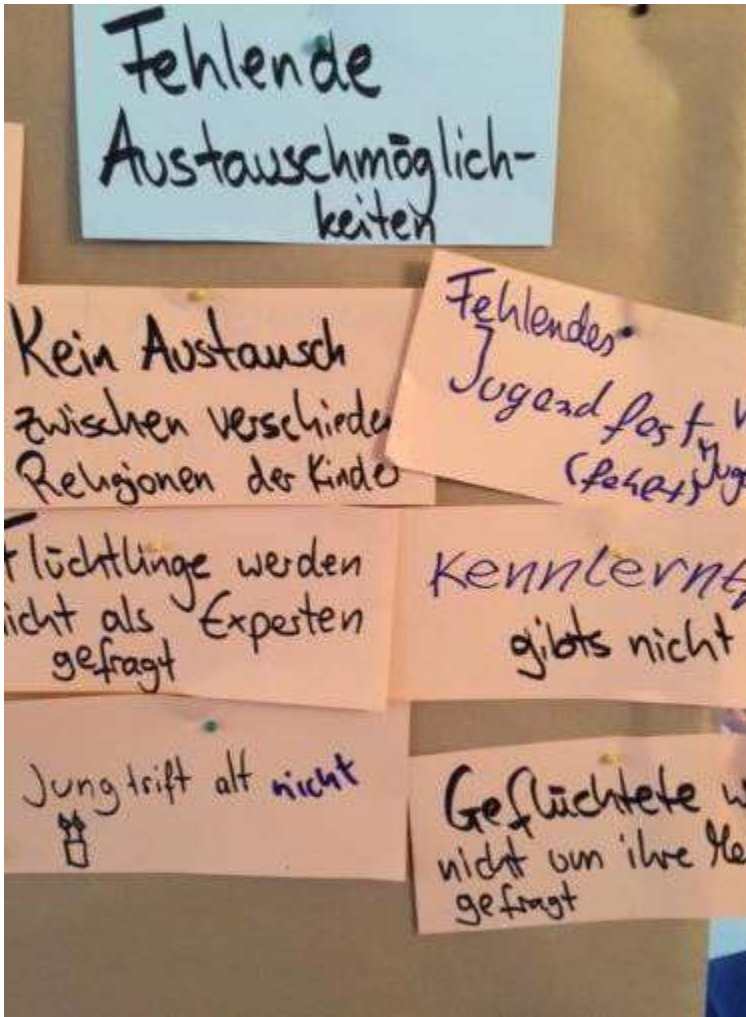 Fehlende
Austauschmöglich-
keiten
Kein Austausch
zwischen verschieden
Religionen der Kinder
Fehlendes
Jugendfest
(fehlt)
Flüchtlinge werden
nicht als Experten
gefragt
gibts nicht
Jung trift alt nicht
Geflüchtete
nicht um ihre
gefragt